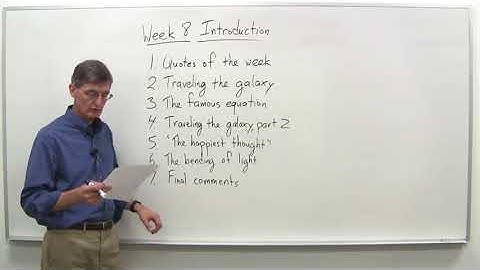 Week 8 Introduction
1. Quotes of the week
2. Traveling the galaxy
3. The famous equation
4. Traveling the galaxy, part 2
5. "The happiest thought"
6. The bending of light
7. Final comments